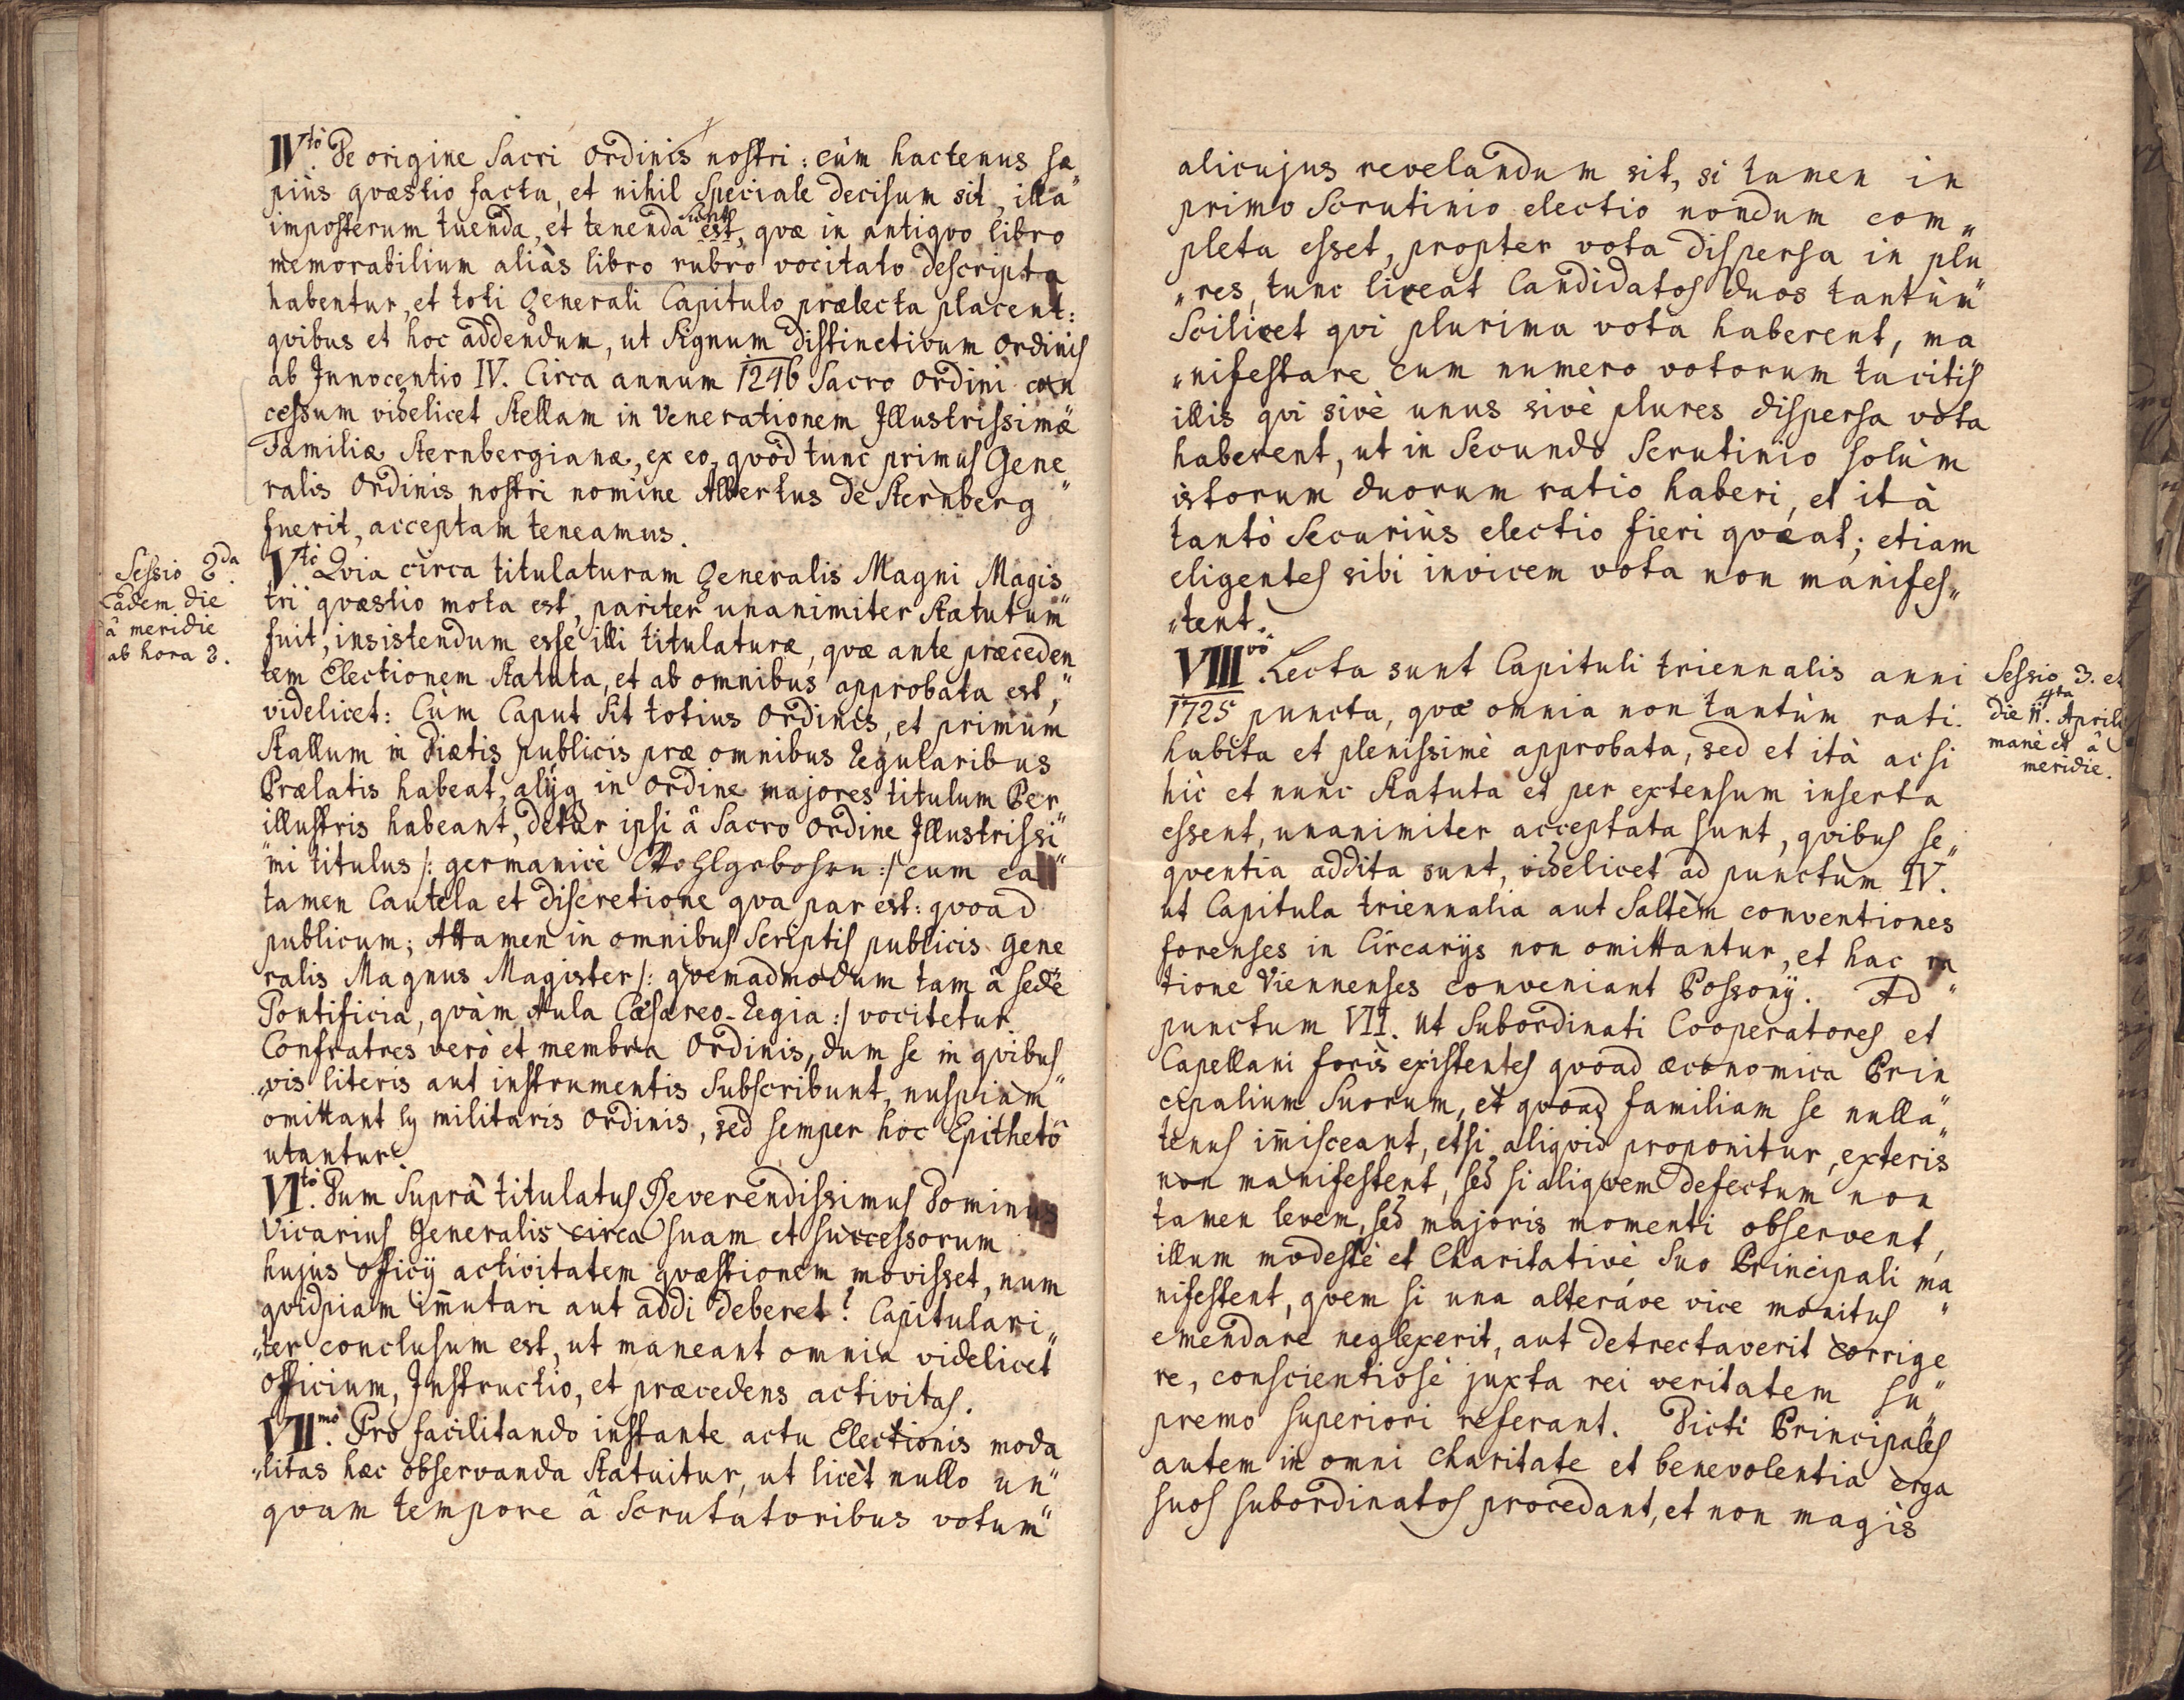 IVtò. De origine Sacri Ordinis nostri: cùm hactenus sæ„
piùs qvæstio facta, et nihil Speciale decisum sit, illa
imposterum tuenda, et tenenda est, sunt qvæ in antiqvo libro
memorabilium aliàs libro rubro vocitato descripta
habentur, et toti Generali Capitulo prælecta placent:
qvibus et hoc addendum, ut Signum distinctivum Ordinis
ab Innocentio IV. Circa annum 1246 Sacro Ordini con
cessum videlicet Stellam in Venerationem Illustrissimæ
Familiæ Sternbergianæ, ex eo, qvòd tunc primus Gene„
ralis Ordinis nostri nomine Albertus de Sternberg
fuerit, acceptam teneamus.
Sessio 2da.
Eadem die
â meridie
ab hora 3.
Vtò Qvia circa titulaturam Generalis Magni Magis„
tri qvæstio mota est, pariter unanimiter Statutum
fuit, insistendum esse illi titulaturæ, qvæ ante præceden„
tem Electionem Statuta, et ab omnibus approbata est,
videlicet: Cùm Caput Sit totius Ordinis, et primum
Stallum in Diætis publicis præ omnibus Regularibus
Prælatis habeat, alijq in Ordine majores titulum Per„
illustris habeant, detur ipsi â Sacro Ordine Illustrissi„
„mi titulus /: germanicè Wohlgebohrn :/ cum ea
tamen Cautela et discretione qva par est: qvoad
publicum; Attamen in omnibus Scriptis publicis Gene„
ralis Magnus Magister /: qvemadmodum tam â sede
Pontificia, qvàm Aula Cæsareo-Regia :/ vocitetur.
Confratres verò et membra Ordinis, dum se in qvibus„
„vis literis aut instrumentis Subscribunt, nuspiam
omittant ly militaris Ordinis, sed semper hoc Epithetô
utantur.
VItò. Dum Suprà titulatus Reverendissimus Dominus
Vicarius Generalis circa suam et successorum
hujus officij activitatem qvæstionem movisset, num
qvidpiam im̄utari aut addi deberet? Capitulari„
„ter conclusum est, ut maneant omnia videlicet
officium, Instructio, et præcedens activitas.
VIImò. Pro facilitando instante actu Electionis moda
„litas hæc observanda Statuitur, ut licèt nullo un„
qvam tempore â Scrutatoribus votum
alicujus revelandum sit, si tamen in
primo Scrutinio electio nondum com„
pleta esset, propter vota dispersa in plu
„res, tunc liceat Candidatos duos tantùm
Scilicet qvi plurima vota haberent, ma„
„nifestare cum numero votorum tacitis
illis qvi sivè unus sivè plures dispersa vota
haberent, ut in Secundo Scrutinio solùm
istorum duorum ratio haberi, et ità
tantò Securiùs electio fieri qveat; etiam
eligentes sibi invicem vota non manifes„
„tent.
VIIIvò. Lecta sunt Capituli triennalis anni
1725 puncta, qvæ omnia non tantùm rati-
habita et plenissimè approbata, sed et ità acsi
hìc et nunc Statuta et per extensum inserta
essent, unanimiter acceptata sunt, qvibus se„
qventia addita sunt, videlicet ad punctum IV.
ut Capitula triennalia aut Saltèm conventiones
forenses in Circarijs non omittantur, et hac ra„
tione Viennenses conveniant Possonij. Ad
punctum VII. Ut Subordinati Cooperatores et
Capellani foris existentes qvoad æconomica Prin
cipalium Suorum, et qvoad familiam se nulla„
tenus im̄isceant, etsi aliqvid proponitur, exteris
non manifestent, sed si aliqvem defectum non
tamen levem, sed majoris momenti observent,
illum modestè et Charitativè Suo Principali ma„
nifestent, qvem si una alteráve vice monitus
emendare neglexerit, aut detrectaverit corrige
re, conscientiosè juxta rei veritatem su„
premo superiori referant. Dicti Principales
autem in omni charitate et benevolentia erga
suos subordinatos procedant, et non magis
Sessio 3. et
4ta
die 11. Aprilis
manè et â
meridie.